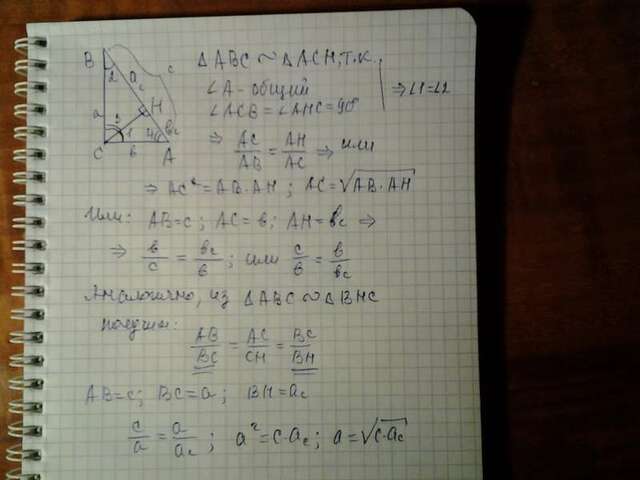 B 2 a_c c
a H
3 1 4 b_c
C b A
△ABC ∾ △ACH, т.к.
∠A - общий
∠ACB = ∠AHC = 90° ⇒ ∠1 = ∠2
⇒ AC/AB = AH/AC ⇒ или
⇒ AC² = AB·AH ; AC = √AB·AH
Или: AB = c ; AC = b ; AH = b_c ⇒
⇒ b/c = b_c/b ; или c/b = b/b_c
Аналогично, из △ABC ∾ △BHC
получим:
AB/BC = AC/CH = BC/BH
AB = c ; BC = a ; BH = a_c
c/a = a/a_c ; a² = c·a_c ; a = √c·a_c